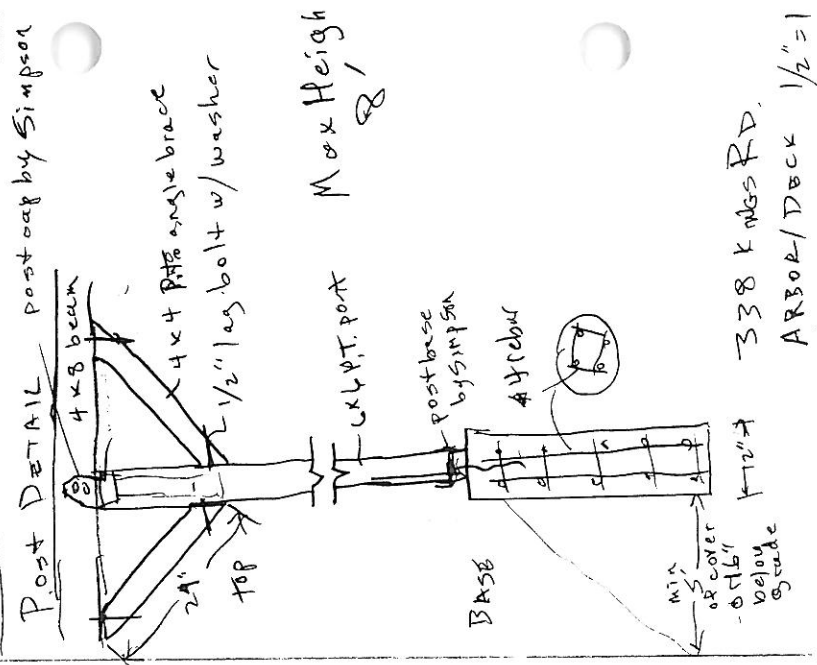 Post DETAIL
post cap by Simpson
4x8 beam
4x4 P.T. angle brace
1/2" lag bolt w/ washer
24"
TOP
Max Heigh
8'
6x6 P.T. post
post base
by SIMPSON
#4 rebar
BASE
min
5'
of cover
below
grade
12"
338 KINGS RD.
ARBOR/DECK 1/2"=1